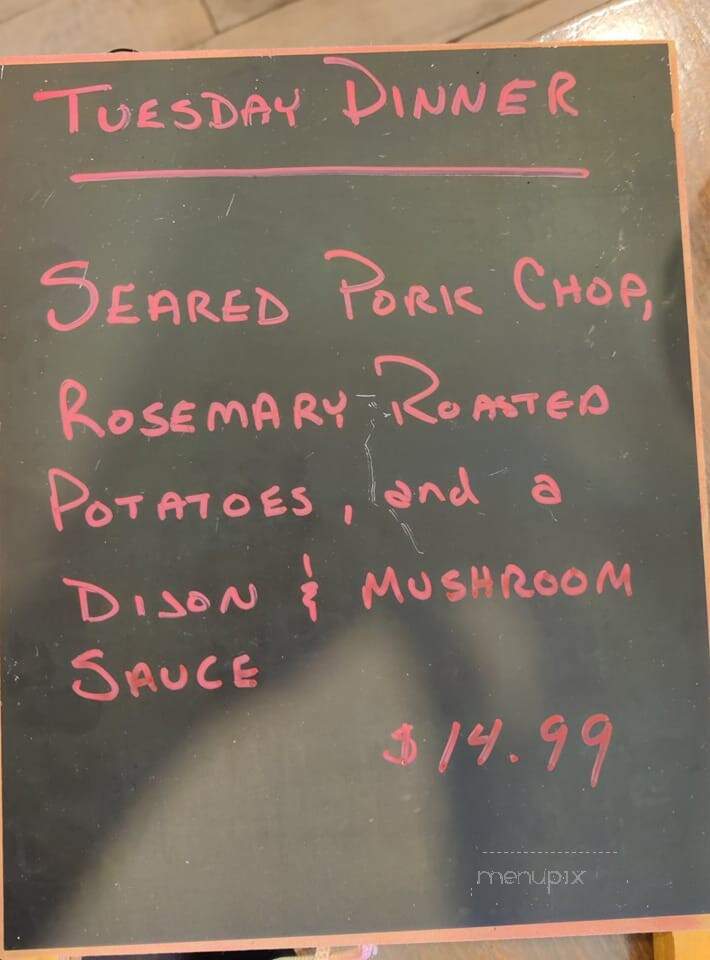 TUESDAY DINNER
SEARED PORK CHOP,
ROSEMARY ROASTED
POTATOES, and a
DIJON & MUSHROOM
SAUCE
$14.99
menupix